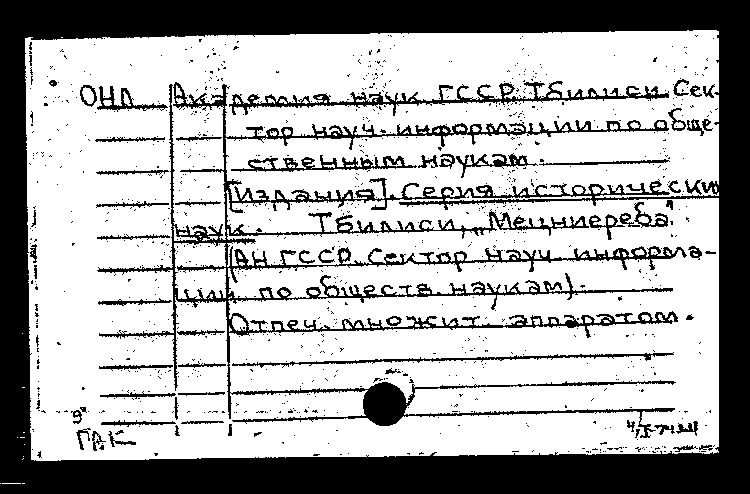 ОНЛ Академия наук ГССР. Тбилиси. Сек-
тор науч. информации по обще-
ственным наукам.
[Издания]. Серия исторических
наук. Тбилиси, „Мецниереба"
(АН ГССР. Сектор науч. информа-
ции по обществ. наукам).
Отпеч. множит. аппаратом.
9"
ГАК